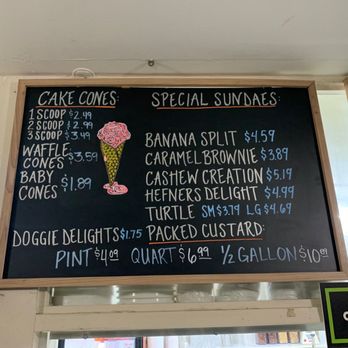 CAKE CONES:
1 SCOOP $2.49
2 SCOOP $2.99
3 SCOOP $3.49
WAFFLE
CONES $3.59
BABY
CONES $1.89
DOGGIE DELIGHTS $1.75
SPECIAL SUNDAES:
BANANA SPLIT $4.59
CARAMEL BROWNIE $3.89
CASHEW CREATION $5.19
HEFNERS DELIGHT $4.99
TURTLE SM $3.79 LG $4.69
PACKED CUSTARD:
PINT $4.09 QUART $6.99 1/2 GALLON $10.99